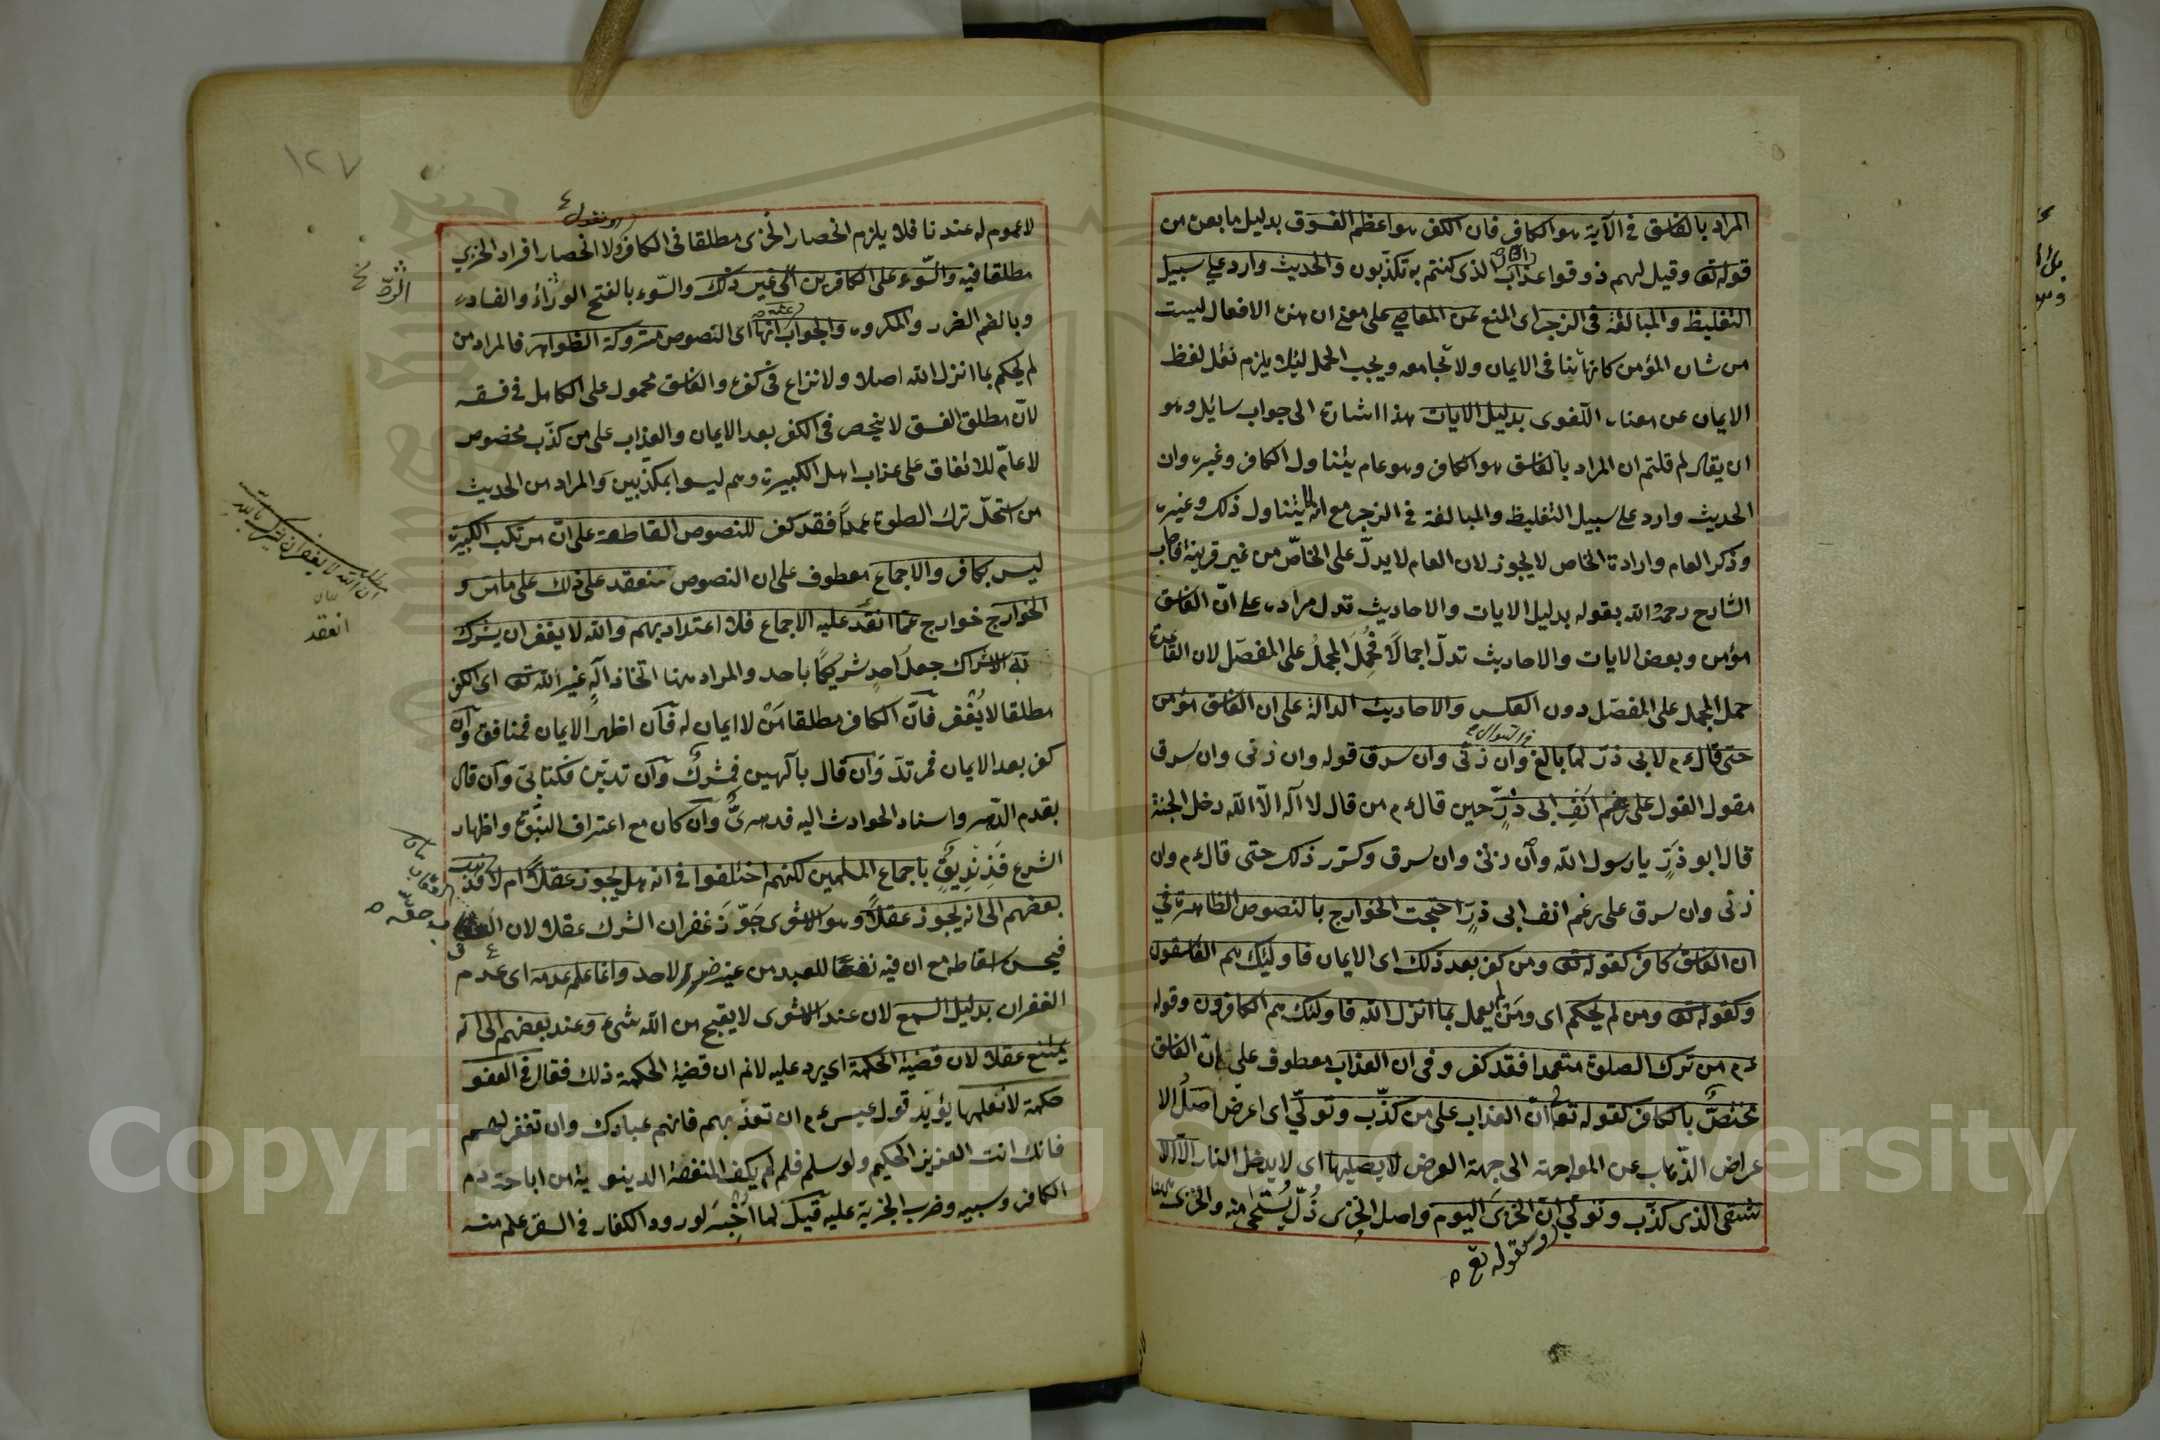 المراد بالفاسق في الآية هو الكافر فان الكفر هو اعظم الفسوق بدليل ما بعده من
قوله تع وقيل لهم ذوقوا عذاب النار الذى كنتم به تكذبون والحديث وارد على سبيل
التغليظ والمبالغة فى الزجر اى المنع عن المعاصي على معنى ان هذه الافعال ليست
من شان المؤمن كانها تنافى الايمان ولا تجامعه ويجب الحمل لئلا يلزم نقل لفظ
الايمان عن معناه اللغوى بدليل الايات هذا اشارة الى جواب سائل وهو
ان يقال لم قلتم ان المراد بالفاسق هو الكافر وهو عام يتناول الكافر وغيره وان
الحديث وارد على سبيل التغليظ والمبالغة في الزجر مع انه يتناول ذلك وغيره
وذكر العام وارادة الخاص لا يجوز لان العام لا يدل على الخاص من غير قرينة فاجاب
الشارح رحمه الله بقوله بدليل الايات والاحاديث تدل مراده على ان الفاسق
مؤمن وبعض الايات والاحاديث تدل اجمالا فحمل المجمل على المفصل لان القاعدة
حمل المجمل على المفصل دون العكس والاحاديث الدالة على ان الفاسق مؤمن
حتى قال ءم لابى ذر لما بالغ فى السؤال وان زنى وان سرق قوله وان زنى وان سرق
مقول القول على رغم انف ابى ذر حين قال ءم من قال لا اله الا الله دخل الجنة
قال ابو ذر يا رسول الله وان زنى وان سرق وكرر ذلك حتى قال ءم وان
زنى وان سرق على رغم انف ابى ذر احتجت الخوارج بالنصوص الظاهرة في
ان الفاسق كافر كقوله تع ومن كفر بعد ذلك اى الايمان فاولئك هم الفاسقون
وكقوله تع ومن لم يحكم اى ومن لم يعمل بما انزل الله فاولئك هم الكافرون وقوله
ءم من ترك الصلوة متعمدا فقد كفر وفى ان العذاب معطوف على ان الفاسق
مختص بالكافر كقوله تع ان العذاب على من كذب وتولى اى اعرض اصل الا
عراض الذهاب عن المواجهة الى جهة العرض لا يصليها اى لا يدخل النار الا الا
شقى الذى كذب وتولى ان الخزى اليوم واصل الخزى ذل يستحى منه والخزى
وكقوله تع
١٢٧
او نقول
لا عموم له عندنا فلا يلزم انحصار الخزى مطلقا فى الكافر ولا انحصار افراد الخزي
مطلقا فيه والسوء على الكافرين الى غير ذلك والسوء بالفتح الرداءة والفساد
وبالضم الضرر والمكروه والجواب عنه انها اى النصوص متروكة الظواهر فالمراد من
لم يحكم بما انزل الله اصلا ولا نزاع فى كفره والفاسق محمول على الكامل فى فسقه
لان مطلق الفسق لا ينحصر فى الكفر بعد الايمان والعذاب على من كذب مخصوص
لا عام للاتفاق على عذاب اهل الكبيرة وهم ليسوا بمكذبين والمراد من الحديث
من استحل ترك الصلوة عمدا فقد كفر للنصوص القاطعة على ان مرتكب الكبيرة
ليس بكافر والاجماع معطوف على ان النصوص منعقد على ذلك على ما مر و
الخوارج خوارج عما انعقد عليه الاجماع فلا اعتداد بهم والله لا يغفر ان يشرك
به الاشراك جعل احد شريكا باحد والمراد هنا اتخاذ اله غير الله تع اى الكفر
مطلقا لا يغفر فان الكافر مطلقا من لا ايمان له فان اظهر الايمان فمنافق وان
كفر بعد الايمان فمرتد وان قال بآلهين فمشرك وان تدين فكتابى وان قال
بقدم الدهر واسناد الحوادث اليه فدهرى وان كان مع اعتراف النبوة واظهار
الشرع فزنديق باجماع المسلمين لكنهم اختلفوا فى انه هل يجوز عقلا ام لا فذهب
بعضهم الى انه يجوز عقلا وهو الاشعرى جوز غفران الشرك عقلا لان العقاب
فيحسن اسقاطه مع ان فيه نفعا للعبد من غير ضرر لاحد وانما علم عدمه اى عدم
الغفران بدليل السمع لان عند الاشعرى لا يقبح من الله شىء وعند بعضهم الى انه
يمتنع عقلا لان قضية الحكمة اى يرد عليه لانم ان قضية الحكمة ذلك فقال فى العفو
حكمة لا نعلمها يؤيد قول عيسى ءم ان تعذبهم فانهم عبادك وان تغفر لهم
فانك انت العزيز الحكيم ولو سلم فلم لم يكف المنفعة الدينوية من اباحة دم
الكافر وسبيه وضرب الجزية عليه قيل لما لورود الكفار فى السقر علم منه
مطلب ان الله لا يغفر ان يشرك به
بيان
انعقد
العقاب
حقه
Copyright © King Saud University